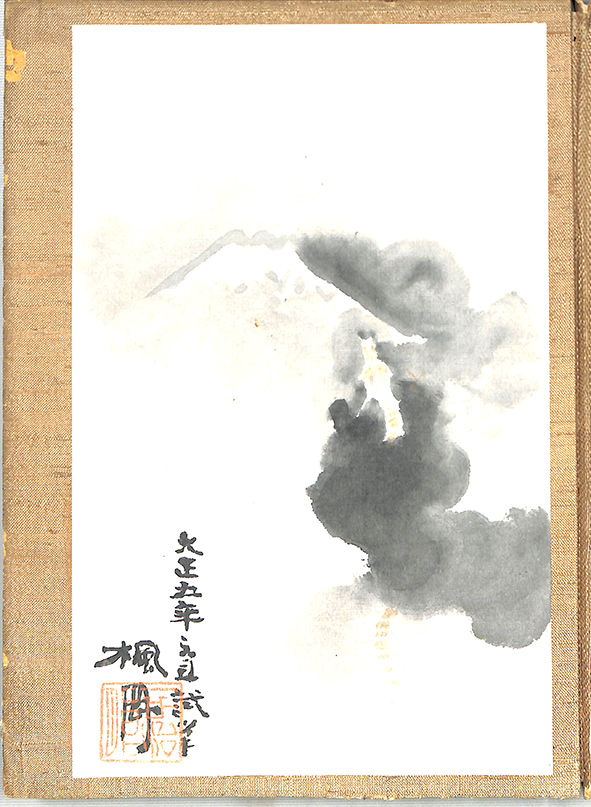 大正五年元旦試筆
楓